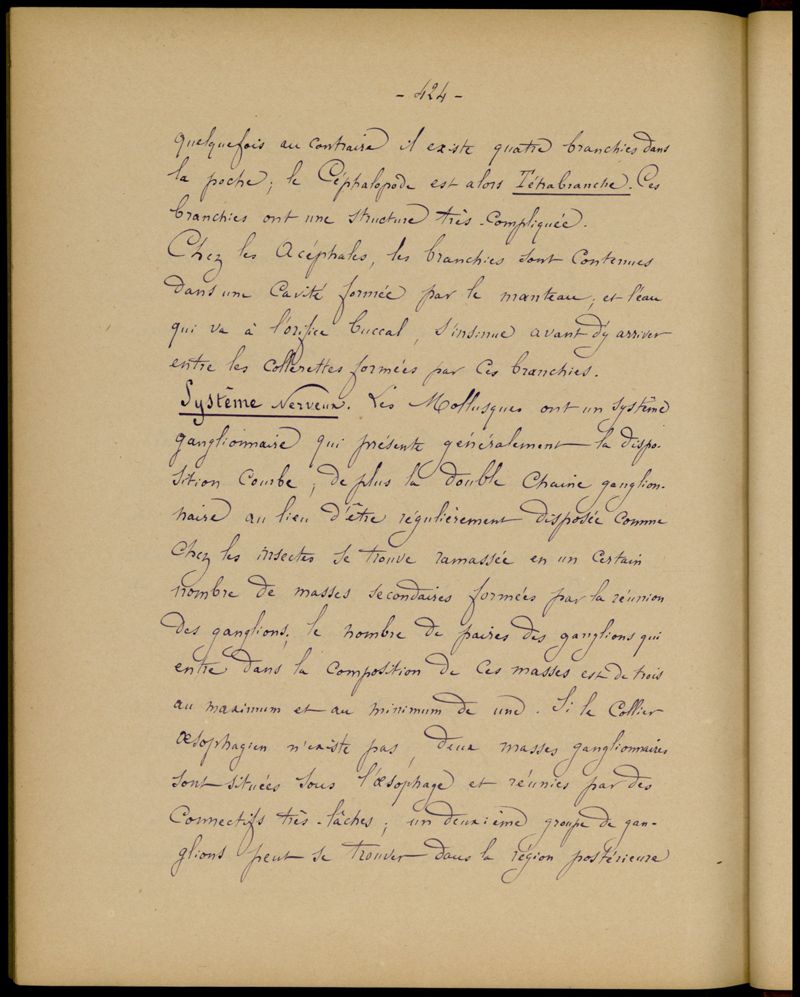 - 424 -
quelquefois au contraire il existe quatre branchies dans
la poche ; le Céphalopode est alors Tétrabranche. Ces
branchies ont une structure très-compliquée.
Chez les Acéphales, les branchies sont contenues
dans une cavité formée par le manteau ; et l'eau
qui va à l'orifice buccal, s'insinue avant d'y arriver
entre les collerettes formées par ces branchies.
Système Nerveux. Les Mollusques ont un système
ganglionnaire qui présente généralement la dispo-
sition courbe ; de plus la double chaine ganglion-
naire au lieu d'être régulièrement disposée comme
chez les insectes se trouve ramassée en un certain
nombre de masses secondaires formées par la réunion
des ganglions ; le nombre de paires des ganglions qui
entre dans la composition de ces masses est de trois
au maximum et au minimum de une. Si le collier
œsophagien n'existe pas, deux masses ganglionnaires
sont situées sous l'œsophage et réunies par des
connectifs très-lâches ; un deuxième groupe de gan-
glions peut se trouver dans la région postérieure